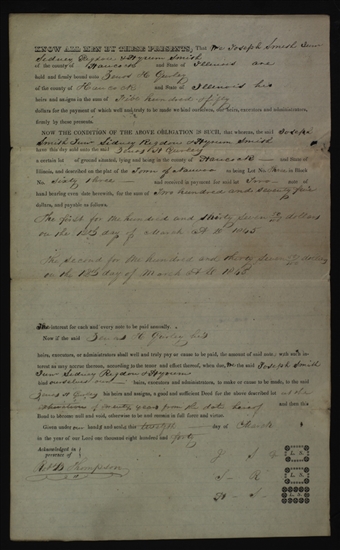 KNOW ALL MEN BY THESE PRESENTS, That We Joseph Smith Junr
Sidney Rigdon & Hyrum Smith
of the county of Hancock and State of Illinois are
held and firmly bound unto
of the county of Hancock and State of Illinois his
heirs and assigns in the sum of Five hundred & fifty
dollars, for the payment of which well and truly to be made we bind ourselves, our heirs, executors and administrators,
firmly by these presents.
NOW THE CONDITION OF THE ABOVE OBLIGATION IS SUCH, that whereas, the said Joseph
Smith Junr Sidney Rigdon & Hyrum Smith
have this day sold unto the said
a certain lot of ground situated, lying and being in the county of Hancock and State of
Illinois, and described on the plat of the Town of Nauvoo as being Lot No. in Block
No. Sixty three and received in payment for said lot Two note of
hand bearing even date herewith, for the sum of Two hundred and seventy five
dollars, and payable as follows.
The first for one hundred and thirty seven dollars
on the day of March
The second for one hundred and thirty seven dollars
on the day of March
The interest for each and every note to be paid annually.
Now if the said his
heirs, executors, or administrators shall well and truly pay or cause to be paid, the amount of said note, with such interest
as may accrue thereon, according to the tenor and effect thereof, which due, we the said Joseph Smith
Junr Sidney Rigdon & Hyrum
bind ourselves our heirs, executors and administrators, to make or cause to be made, to the said
his heirs and assigns, a good and sufficient Deed for the above described lot at the
expiration of years from the date hereof and then this
Bond to become null and void, otherwise to be and remain in full force and virtue.
Given under our hand and seal this day of March
in the year of our Lord one thousand eight hundred and forty
Acknowledged in presence of
J S L. S.
R B Thompson
S R L. S.
H S L. S.